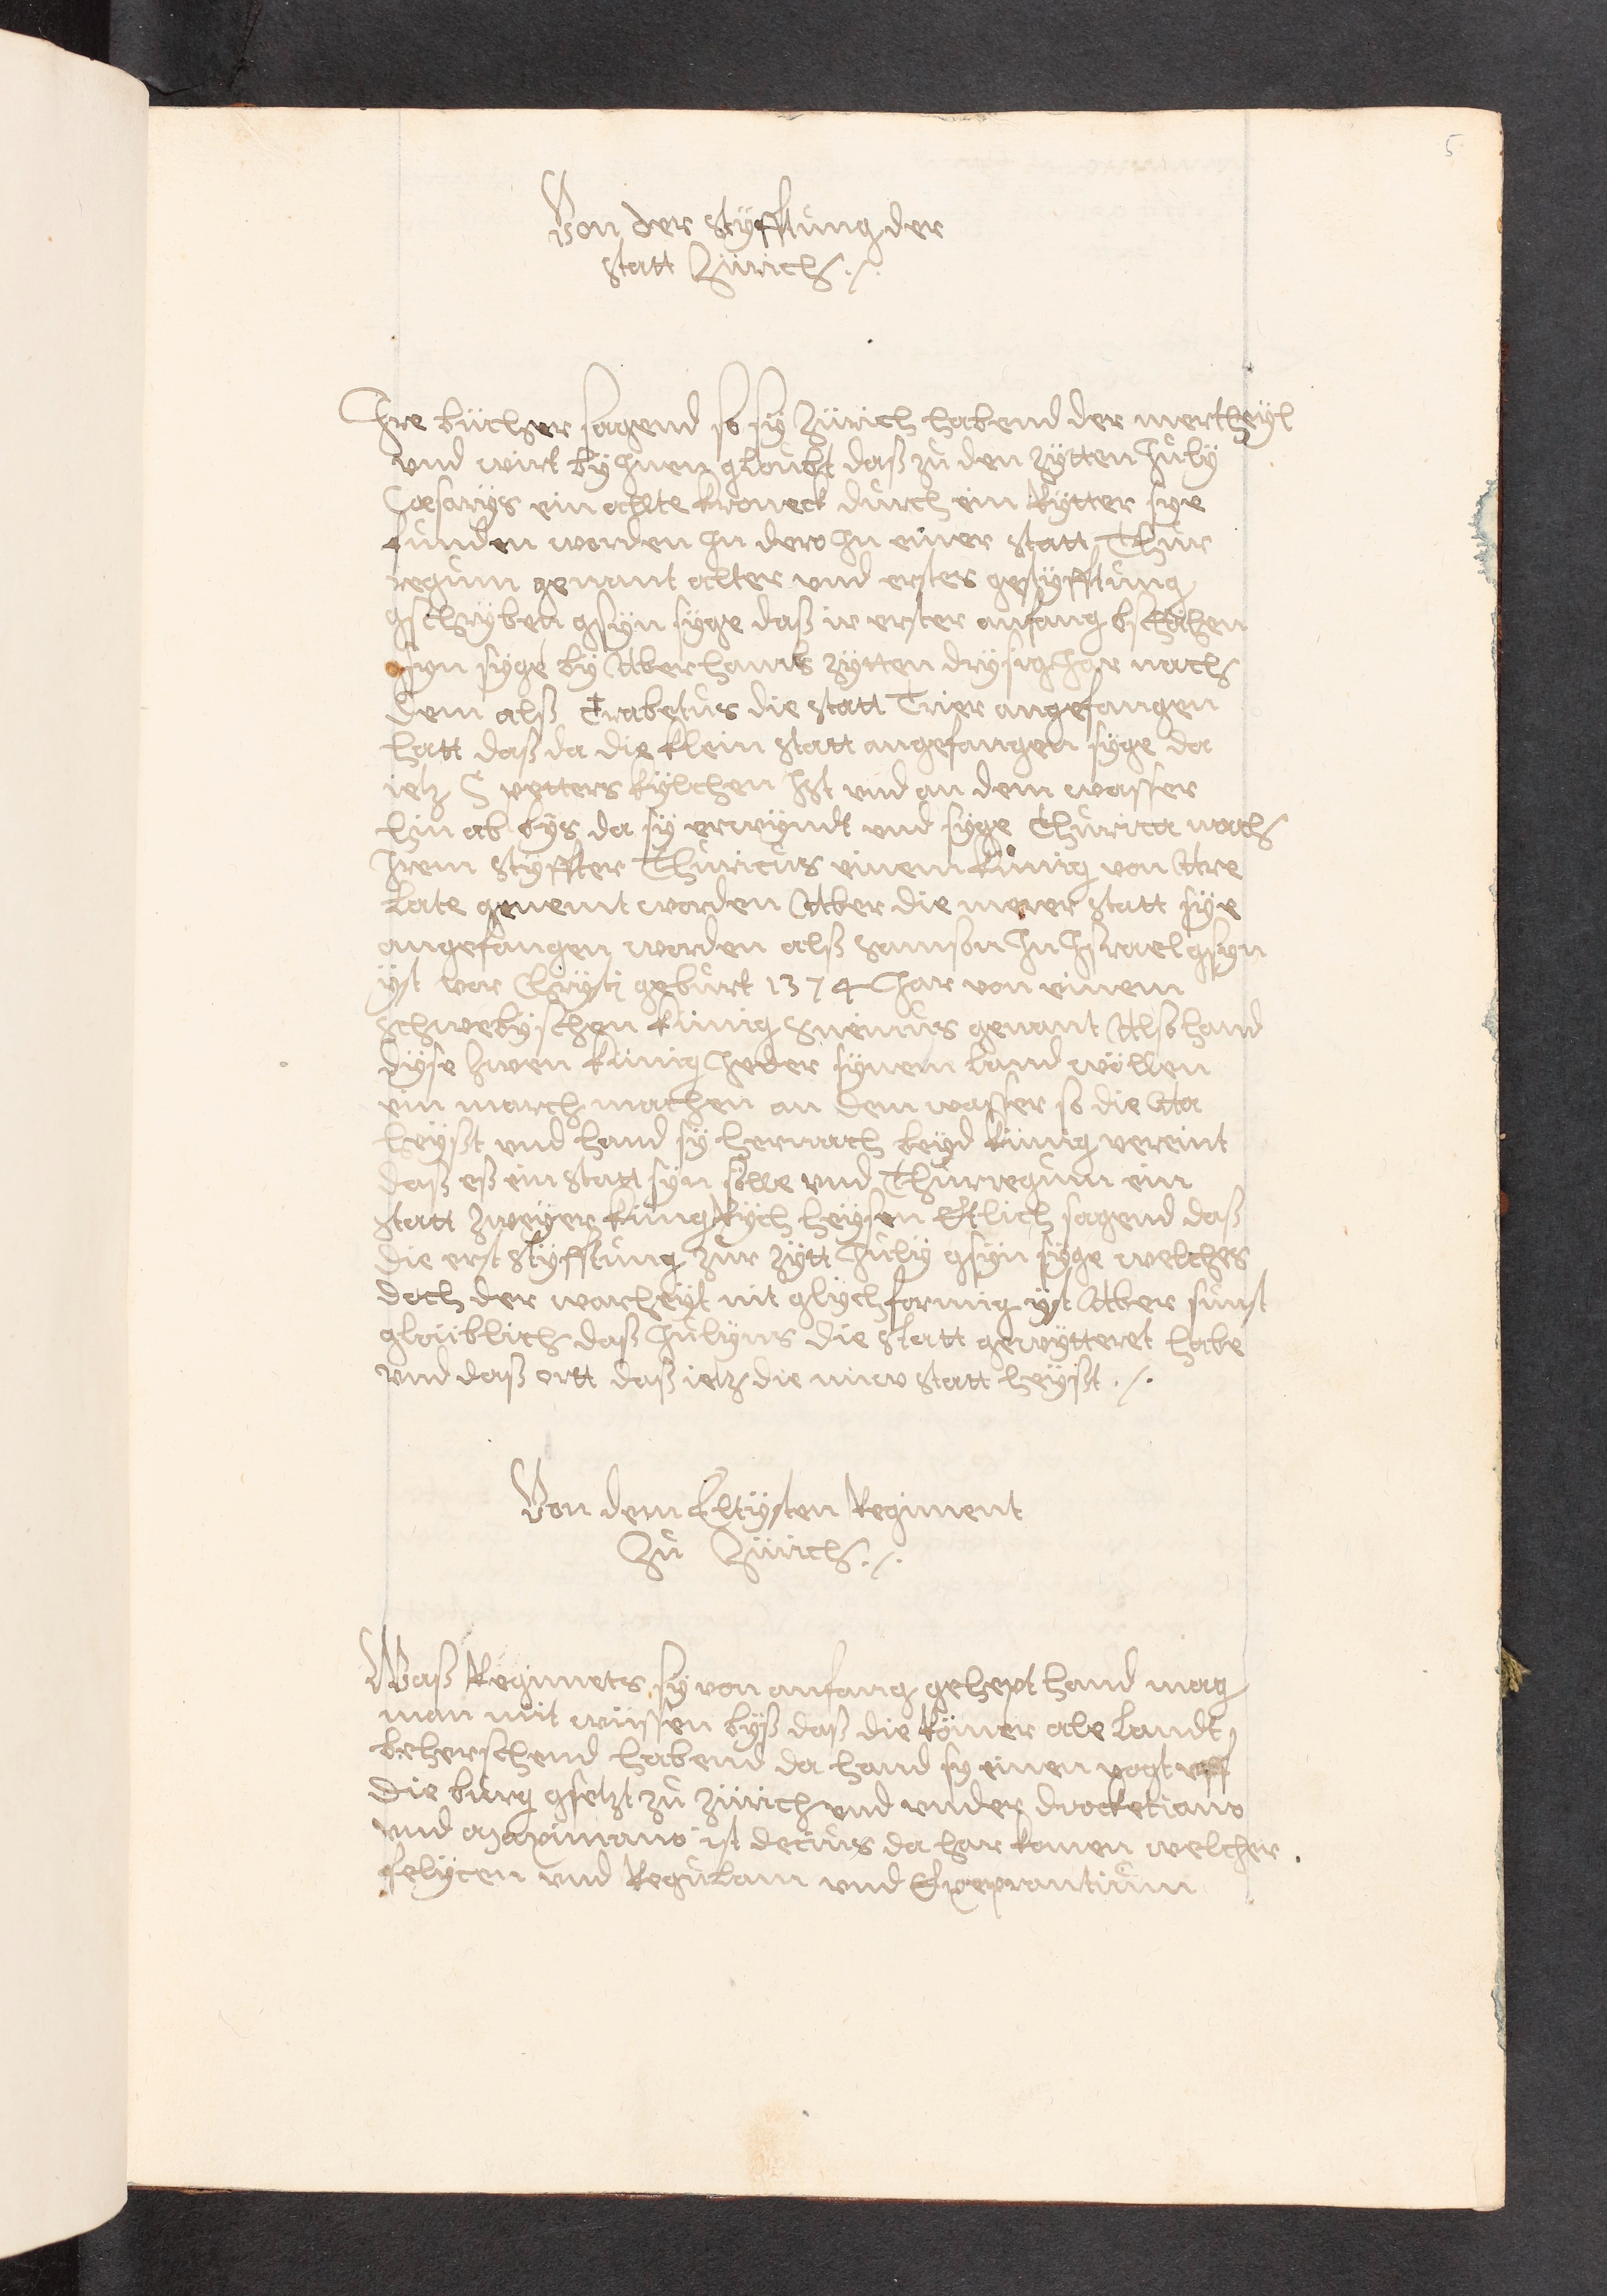 5
Von der styfftung der
statt Zürich ./.
Ihre bücher sagend so sy Zürich habend der mertheyl
vnd wirt by Inen gloubt daß zů den zytten Iuly
Cæsarys ein allte kroneck durch ein Rytter sye
funden worden In dero In einer statt Thur
regum genant allter vnd erstes gestyfftung
gschryben gsyn syge daß ir erster anfang bschähen
gsyn syge by Aberhams zytten drysig Jar nach
dem alß Trabetus die statt Trier angefangen
hatt daß da die klein statt angefangen syge da
ietz S petters kylchen Ist vnd an dem wasser
hin ab bys da sy erwyndt vnd syge Thurica nach
Irem styffter Thuricus einem künig von Are
late genemt worden Aber die merer statt sye
angefangen worden alß Samson In Israel gsyn
yst vor Chrysti geburt 1374 Jar von einem
schwebyschen künig Sueuus genant Also hand
dyse zwen künig Jeder synem land wöllen
ein march machen an dem wasser so die Aa
heyßt vnd hand sy hernach beyd künig vereint
daß eß ein statt syn sölle vnd Thurregum ein
statt zweyer küngrych heysen Ettlich sagend daß
die erst styfftung zur zytt Iuly gsyn syge welches
doch der warheyt nit glychformig yst Aber sunst
gloüblich daß Iulyus die statt gewytteret habe
vnd daß ortt daß ietz die nüw statt heyßt ./.
Von dem Eltysten Regiment
Zů Zürich ./.
Waß Regimets sy von anfang gehept hand mag
man nüt wüssen byß daß die Römer ale landt
beherschend habend da hand sy einen vogt vff
die burg gsetzt zů Zürich vnd vnder
vnd Maximano ist decius da har komen welcher
felycen vnd Regulam vnd Exeprantium